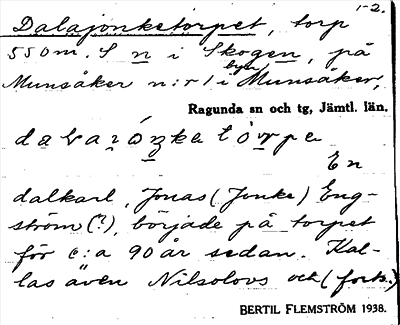 1-2.
Dalajonketorpet, torp
550 m. S n i Skogen, på
Munsåker n:r 1 i byn Munsåker,
Ragunda sn och tg, Jämtl. län.
En
dalkarl, Jonas (Jonke) Eng-
ström (?), började på torpet
för c:a 90 år sedan. Kal-
las även Nilsolovs och (forts.)
BERTIL FLEMSTRÖM 1938.